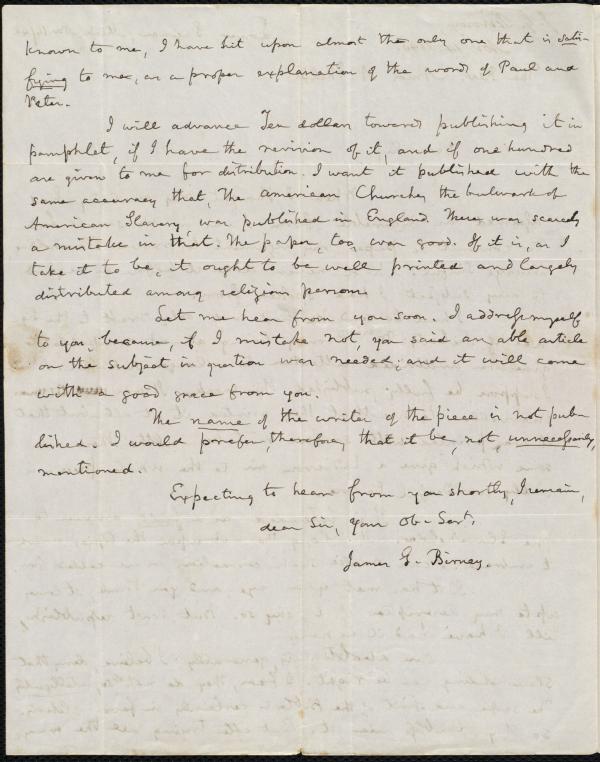 known to me, I have hit upon almost the only one that is satis-
fying to me, as a proper explanation of the words of Paul and
Peter.
I will advance Ten dollars towards publishing it in
pamphlet, if I have the revision of it, and if one hundred
are given to me for distribution. I want it published with the
same accuracy that, The American Churches the bulwark of
American Slavery, was published in England. There was scarcely
a mistake in that. The paper, too, was good. If it is, as I
take it to be, it ought to be well printed and largely
distributed among religious persons.
Let me hear from you soon. I address myself
to you, because, if I mistake not, you said an able article
on the subject in question was needed; and it will come
with a good grace from you.
The name of the writer of the piece is not pub-
lished. I would prefer, therefore, that it be, not, unnecessarily,
mentioned.
Expecting to hear from you shortly, I remain,
dear Sir, your Ob. Servt.
James G. Birney.